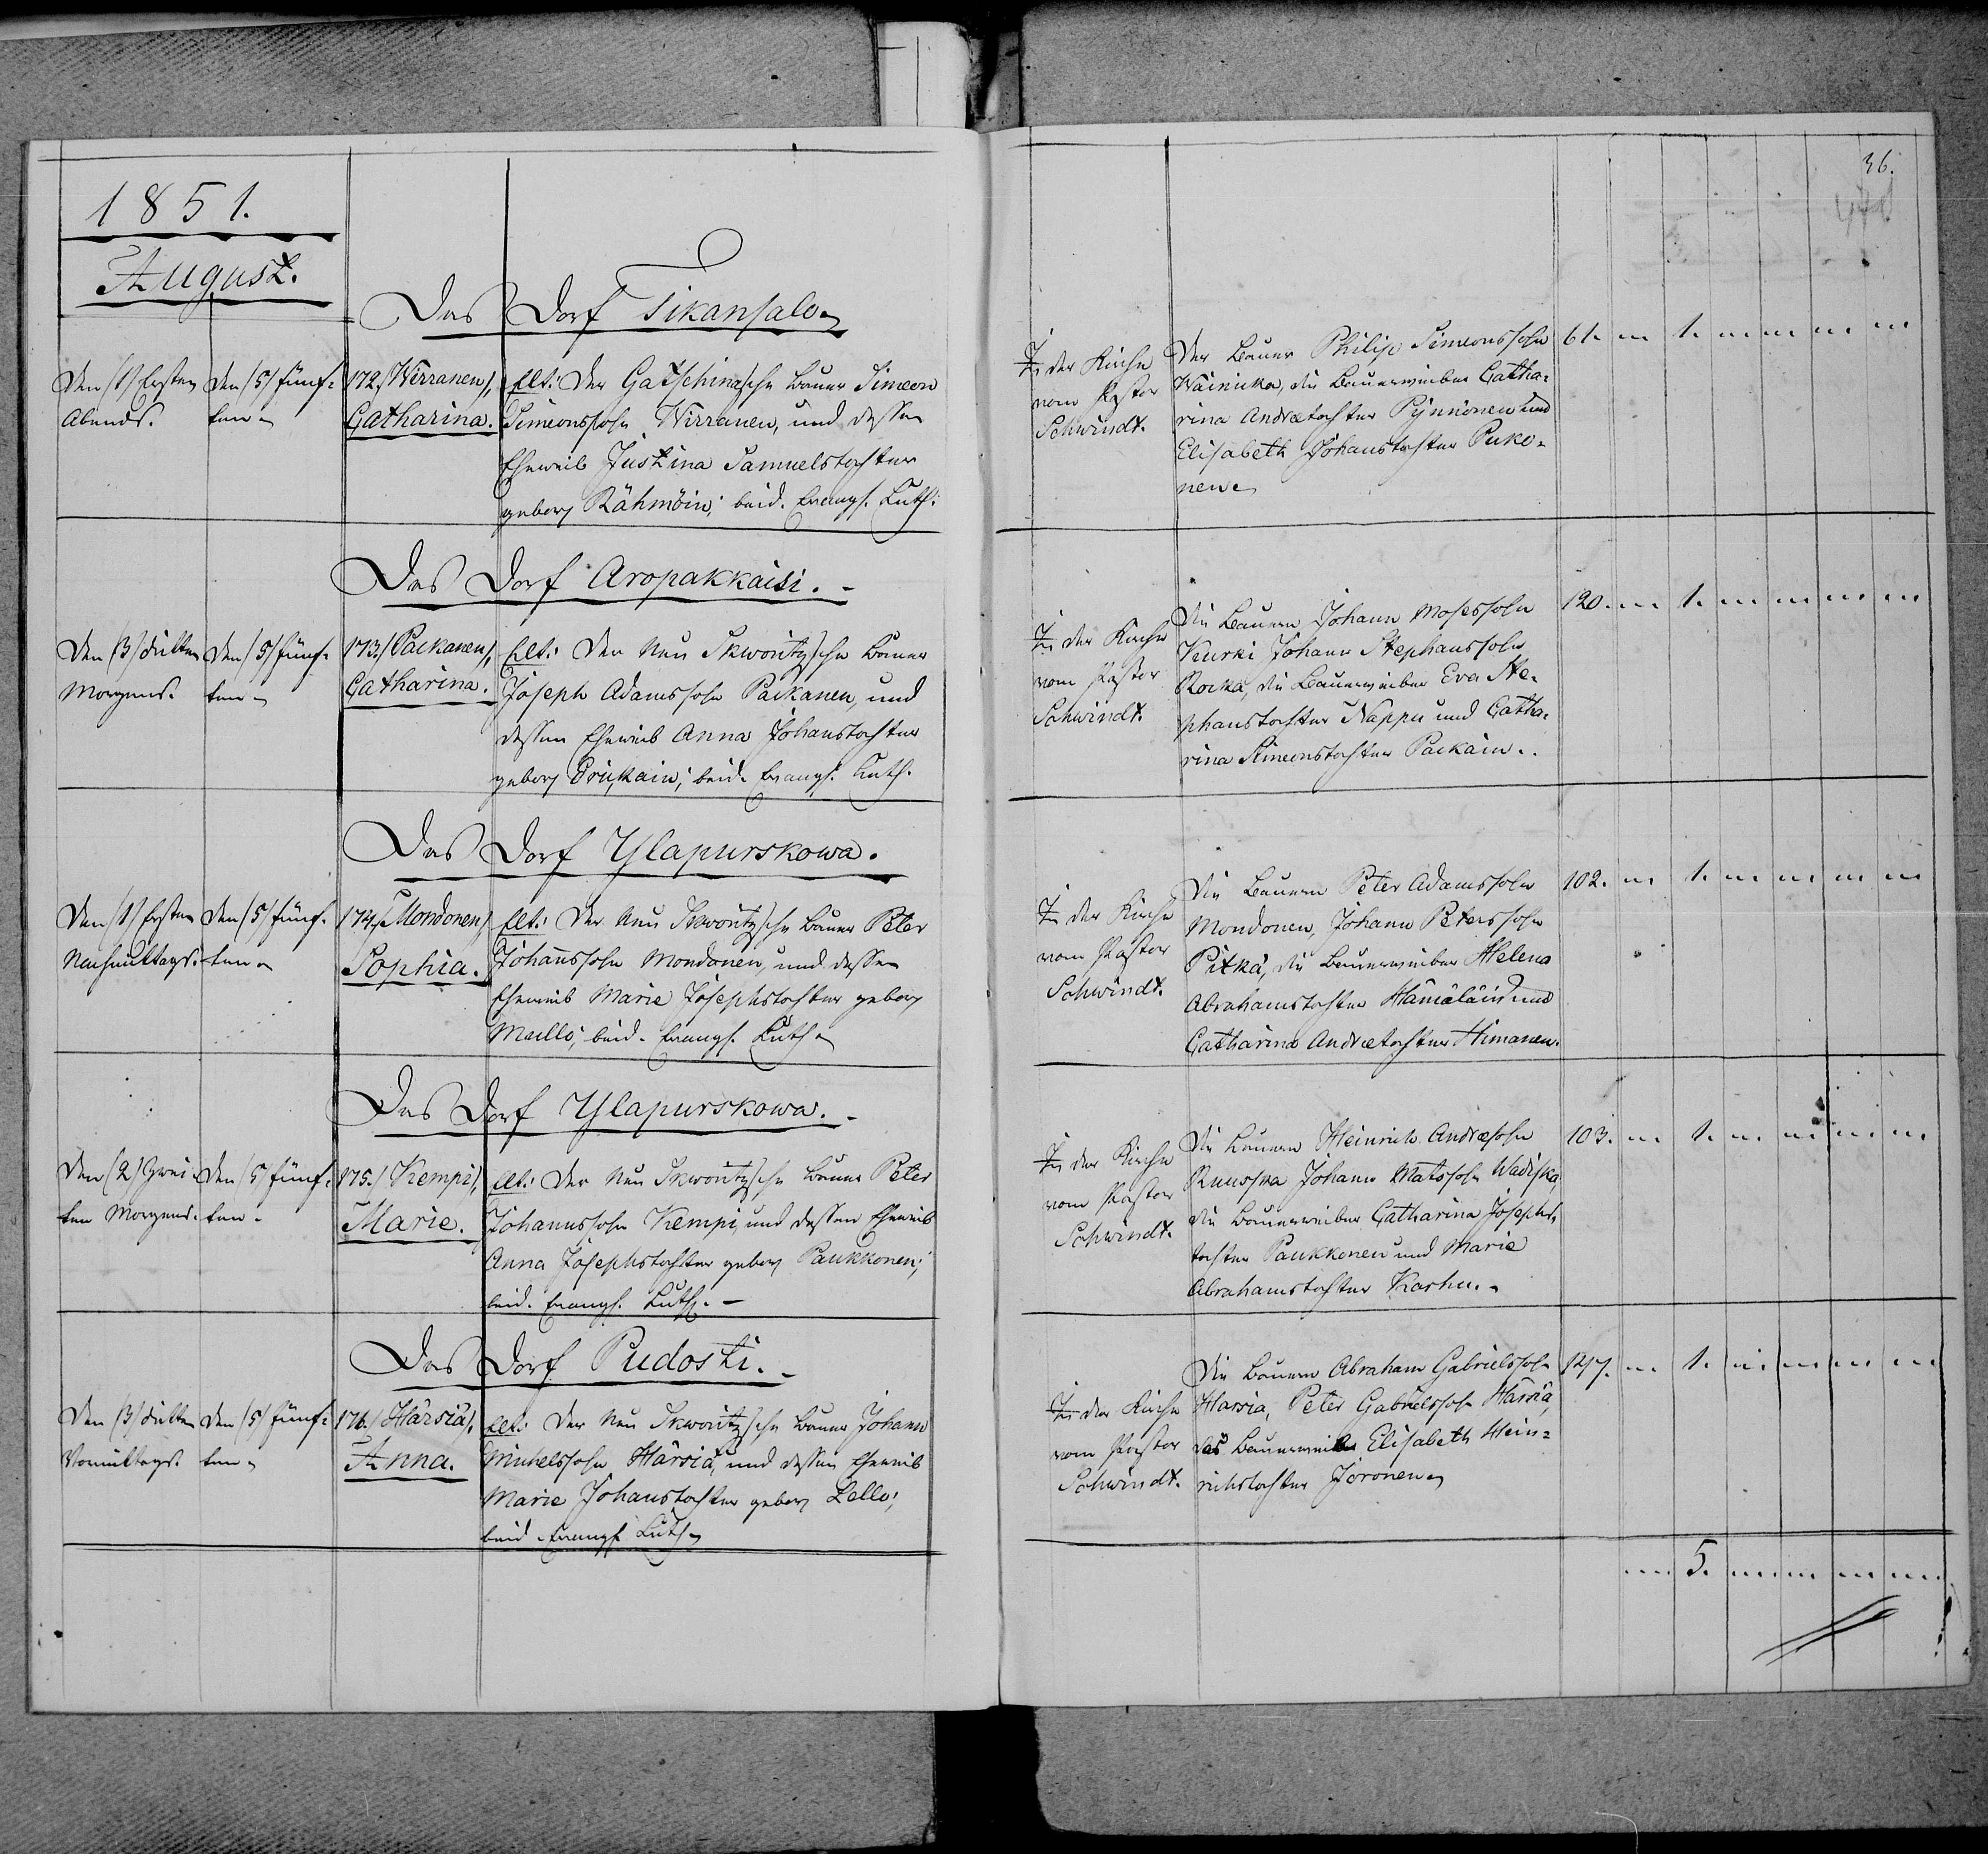 1851.
August.
36.
Das Dorf Tikansalo
Den (1) Ersten
Abends.
den (5) fünf-
ten
172. (Wirranen),
Catharina.
Elt: Der Gatschinasche Bauer Simeon
Simeonssohn Wirranen, und dessen
Eheweib Justina Samuelstochter
gebor Rähmöin; beid. Evangl. Luth:
In der Kirche
vom Pastor
Schwindt.
Der Bauer Philip Simeonssohn
Wäinikka, die Bauerweiber Catha-
rina Andretochter Pÿnnönen und
Elisabeth Johanstochter Puko-
nen
61. 1.
Das Dorf Aropakkaisi.
Den (3) dritten
Morgens.
den (5) fünf-
ten
173. (Paikanen),
Catharina.
Elt: Der Neu Skworitzsche Bauer
Joseph Adamssohn Paikanen, und
dessen Eheweib Anna Johanstochter
gebor beid. Evangl. Luth.
In der Kirche
vom Pastor
Schwindt.
Die Bauern Johann Mosessohn
Kurki Johann Stephanssohn
Rokka, die Bauerweiber Eva Ste-
phanstochter Nappu und Catha-
rina Simeonstochter Paikain.
120. 1.
Das Dorf Ylapurskowa.
Den (1) Ersten
Nachmittags.
den (5) fünf-
ten
174. (Mondonen)
Sophia.
Elt: Der Neu Skworitzsche Bauer Peter
Johanssohn Mondonen, und dessen
Eheweib Marie Josephstochter gebor
Maullo; beid. Evangl. Luth
In der Kirche
vom Pastor
Schwindt.
Die Bauern Peter Adamssohn
Mondonen, Johann Peterssohn
Pitkä, die Bauerweiber Helena
Abrahamstochter Hämäläin und
Catharina Andretochter Himanen.
102. 1.
Das Dorf Ylapurskowa.
Den (2) Zwei-
ten Morgens.
den (5) fünf-
ten.
175. (Kempi),
Marie.
Elt: Der Neu Skworitzsche Bauer Peter
Johannssohn Kempi, und dessen Eheweib
Anna Josephstochter gebor Paukkonen;
beid. Evangl. Luth.
In der Kirche
vom Pastor
Schwindt.
Die Bauern Heinrich Andresohn
Ruuska Johann Matssohn
die Bauerweiber Catharina Josephs-
tochter Paukkonen und Marie
Abrahamstochter Karhu.
103. 1.
Das Dorf Pudosti.
Den (3) dritten
Vormittags
den (5) fünf-
ten
176. (Härsiä),
Anna.
Elt: Der Neu Skworitzsche Bauer Johann
Michelssohn Härsiä, und dessen Eheweib
Marie Johanstochter gebor Lello;
beid. Evangl Luth
In der Kirche
vom Pastor
Schwindt.
Die Bauern Abraham Gabrielssohn
Harsia, Peter Gabrielssohn Härsiä,
das Bauerweib Elisabeth Hein-
richstochter Joronen
127. 1.
5.